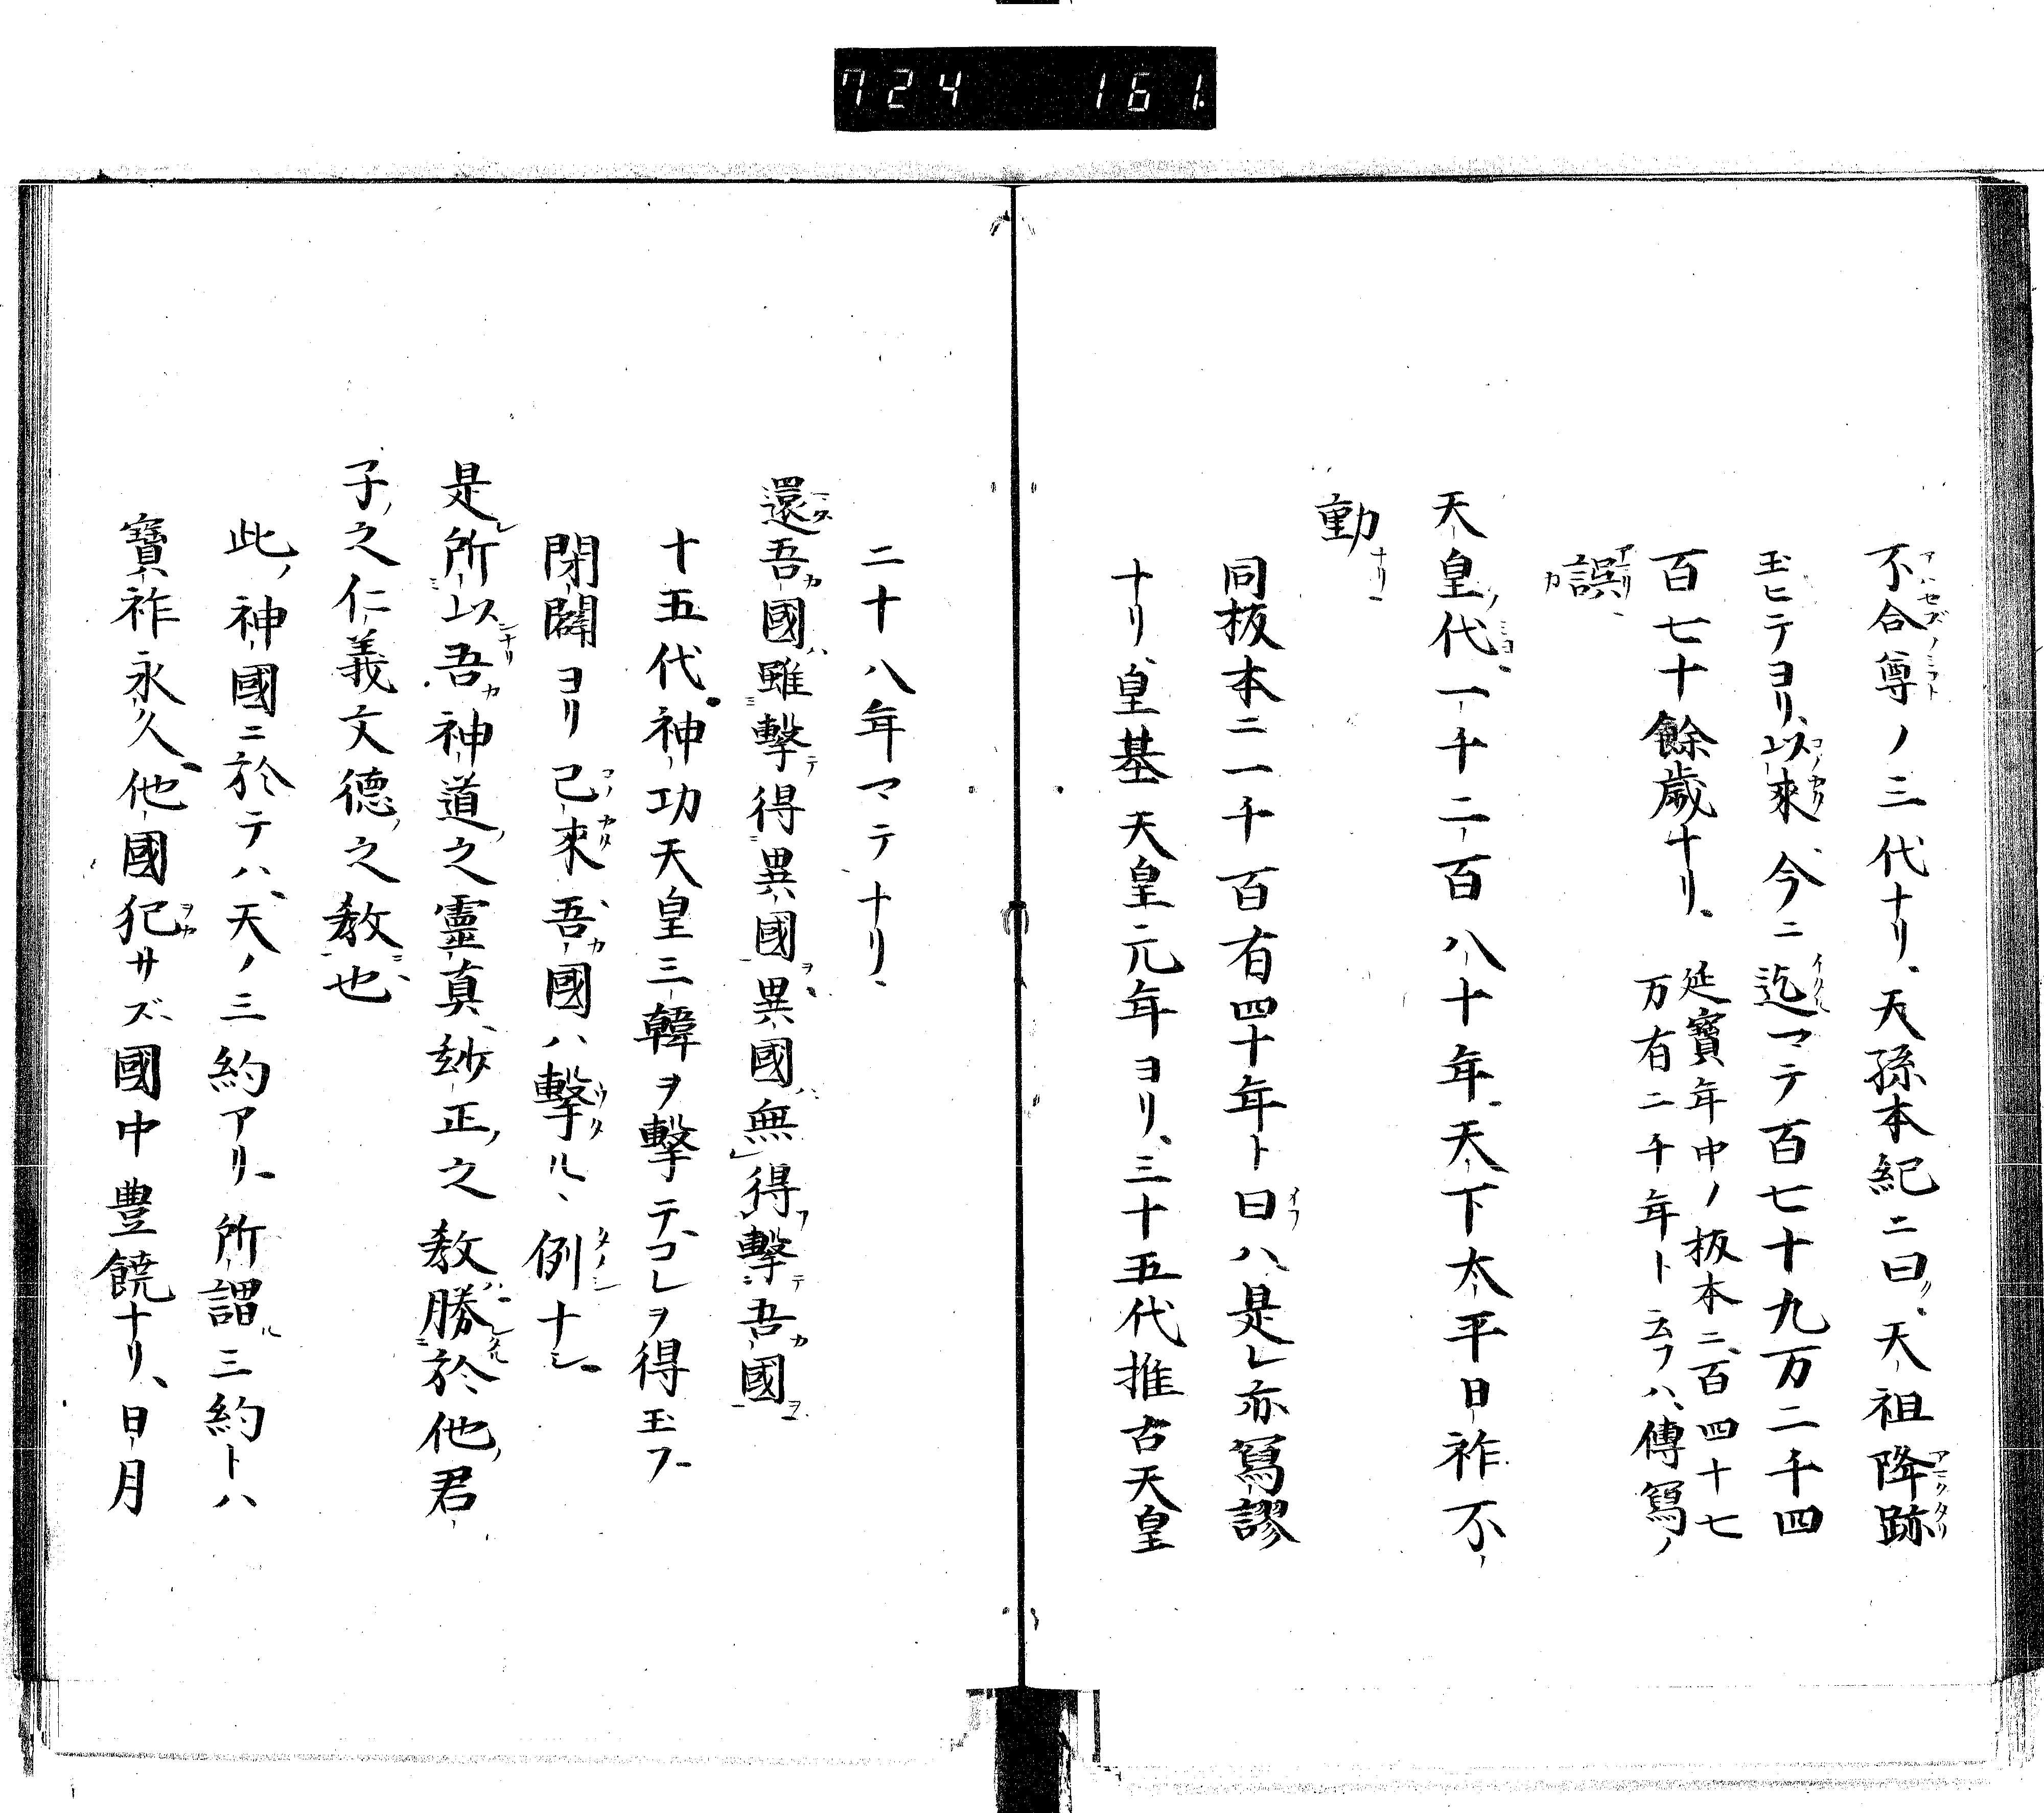 724 161.
不合尊ノ三代ナリ、天孫本紀ニ曰ク、天祖降跡
玉ヒテヨリ以來、今ニ迄マテ百七十九万二千四
百七十餘歳ナリ、延寶年中ノ板本ニ百四十七
万有二千年ト云フハ、傳寫ノ
誤
天皇ノ代一千二百八十年天下太平日祚不ノ
動ナリ
同板本ニ一千百有四十年ト曰ハ是レ亦寫謬
ナリ、皇基天皇元年ヨリ、三十五代推古天皇
二十八年マテナリ、
還吾カ國ハ雖擊テ得異國ヲ異國ハ無得擊テ吾カ國ヲ
十五代神功天皇三韓ヲ擊テ、コレヲ得玉フ
閉闢ヨリ已來吾カ國ハ擊ルヽ例ナシ
是レ所以吾カ神道之靈真玅正之教勝於他君
子之仁義文德之教也
此ノ神國ニ於テハ、天ノ三約アリ、所謂ル三約トハ
寶祚永久他國犯サズ國中豊饒ナリ、日月